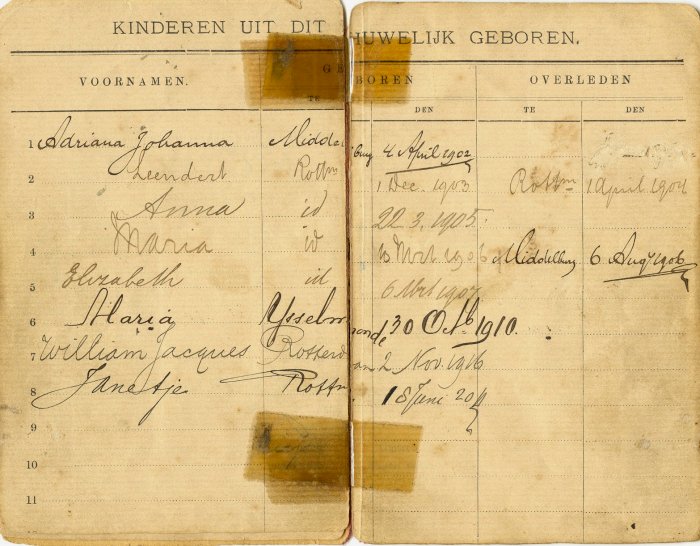 KINDEREN UIT DIT HUWELIJK GEBOREN.
VOORNAMEN. GEBOREN OVERLEDEN
TE DEN TE DEN
1 Adriana Johanna Middelburg 4 April 1902
2 Leendert Rottm 1 Dec. 1903 Rottm 1 April 1904
3 Anna id 22.3.1905.
4 Maria id Mrt 1906 Middelburg 6 Augs 1906
5 Elizabeth id 6 Mrt 1907
6 Maria Ysselmonde 30 Octb 1910.
7 William Jacques Rotterdam 2 Nov. 1916
8 Janetje Rottm 18 Juni 20
9
10
11